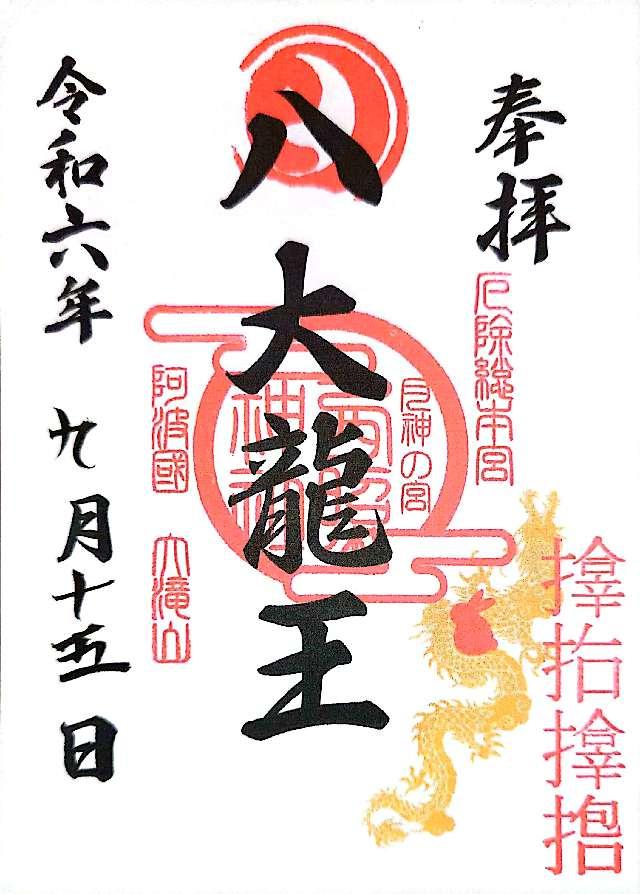 奉拝
厄除総本宮
月神の宮
八大龍王
阿波國 大滝山
令和六年 九月十五日